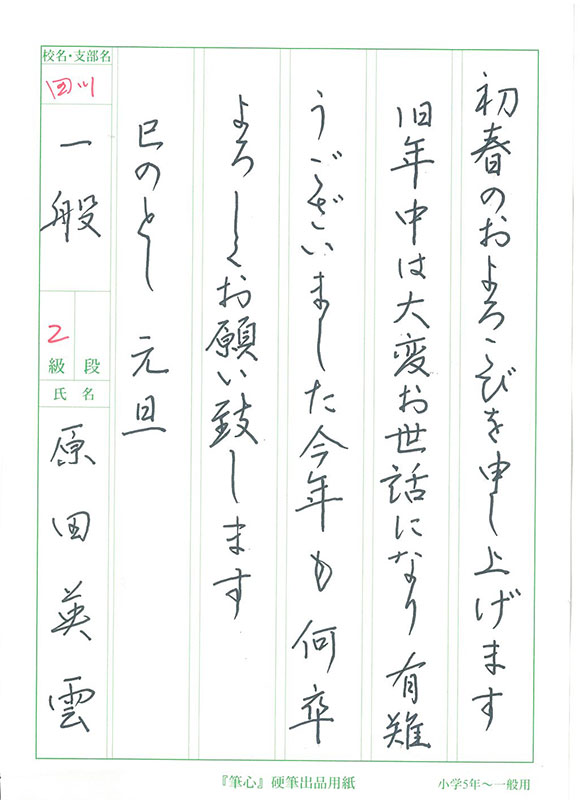 初春のおよろこびを申し上げます
旧年中は大変お世話になり有難
うございました今年も何卒
よろしくお願い致します
巳のとし 元旦
校名・支部名
田川
一般
2
級 段
氏名
原田英雲
『筆心』硬筆出品用紙
小学5年～一般用